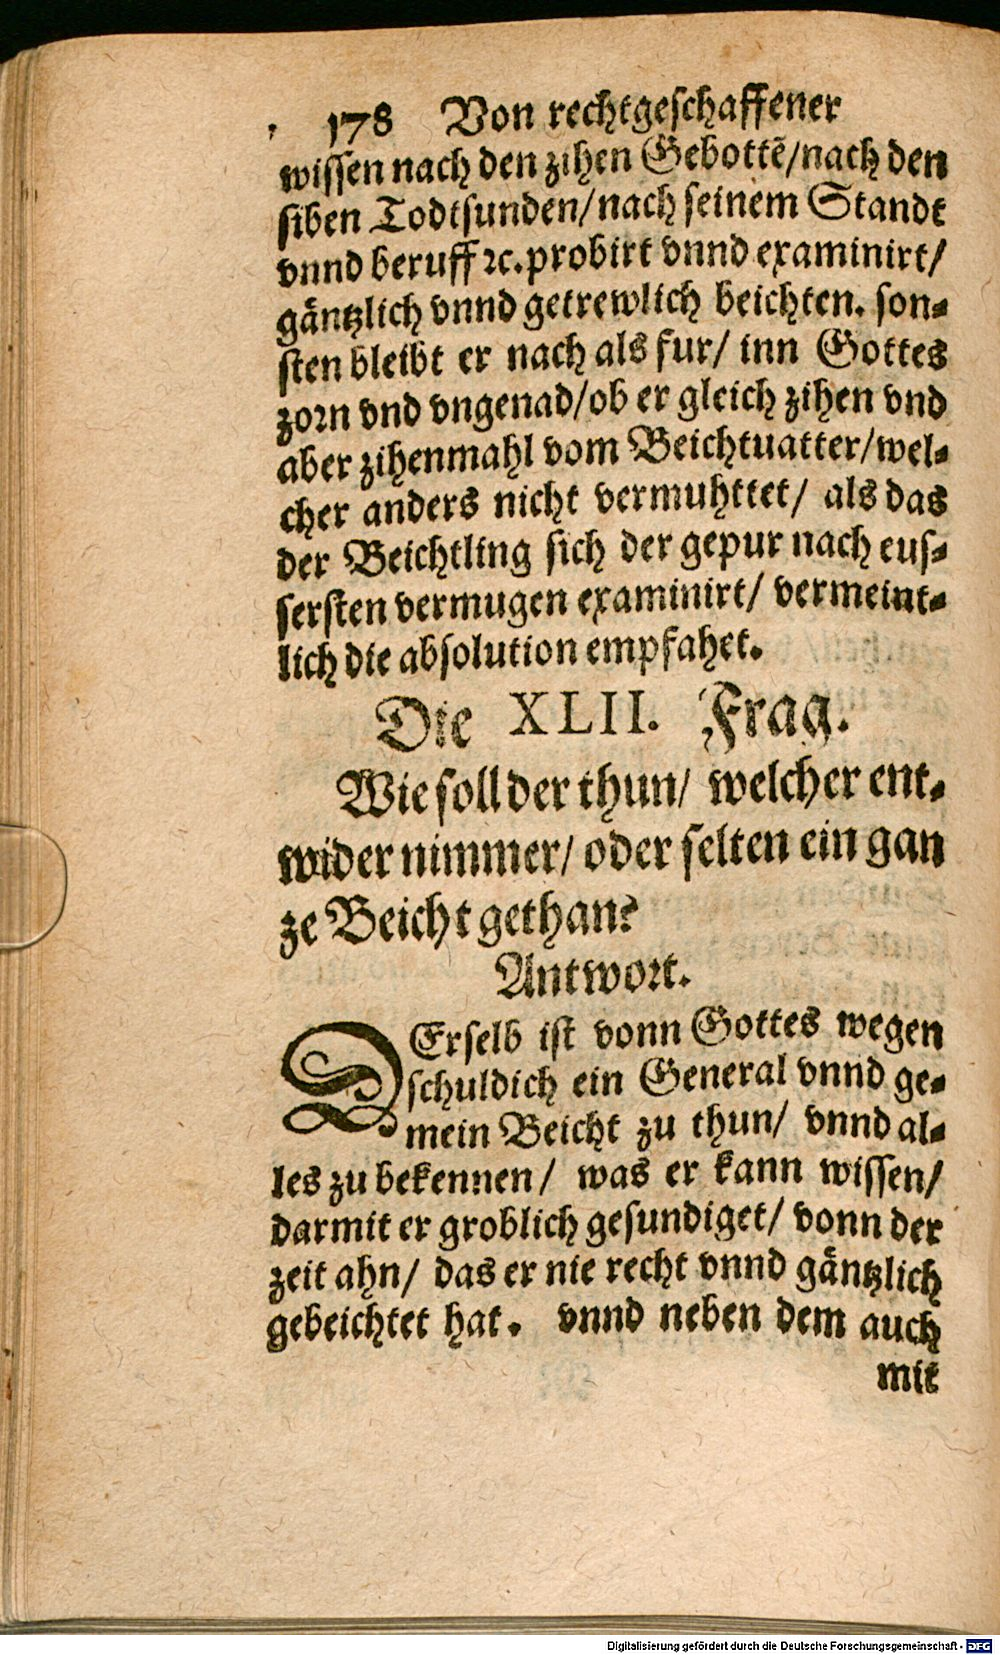 178 Von rechtgeschaffener
wissen nach den zihen Gebottẽ/nach den
siben Todtsunden/nach seinem Standt
vnnd beruff ꝛc.probirt vnnd examinirt/
gäntzlich vnnd getrewlich beichten. son-
sten bleibt er nach als fur/ inn Gottes
zorn vnd vngenad/ob er gleich zihen vnd
aber zihenmahl vom Beichtuatter/wel-
cher anders nicht vermuhttet/ als das
der Beichtling sich der gepur nach eus-
sersten vermugen examinirt/ vermeint-
lich die absolution empfahet.
Die XLII. Frag.
Wie soll der thun/ welcher ent-
wider nimmer/ oder selten ein gan
ze Beicht gethan?
Antwort.
DErselb ist vonn Gottes wegen
schuldich ein General vnnd ge-
mein Beicht zu thun/ vnnd al-
les zu bekennen/ was er kann wissen/
darmit er groblich gesundiget/ vonn der
zeit ahn/ das er nie recht vnnd gäntzlich
gebeichtet hat. vnnd neben dem auch
mit
Digitalisierung gefördert durch die Deutsche Forschungsgemeinschaft - DFG